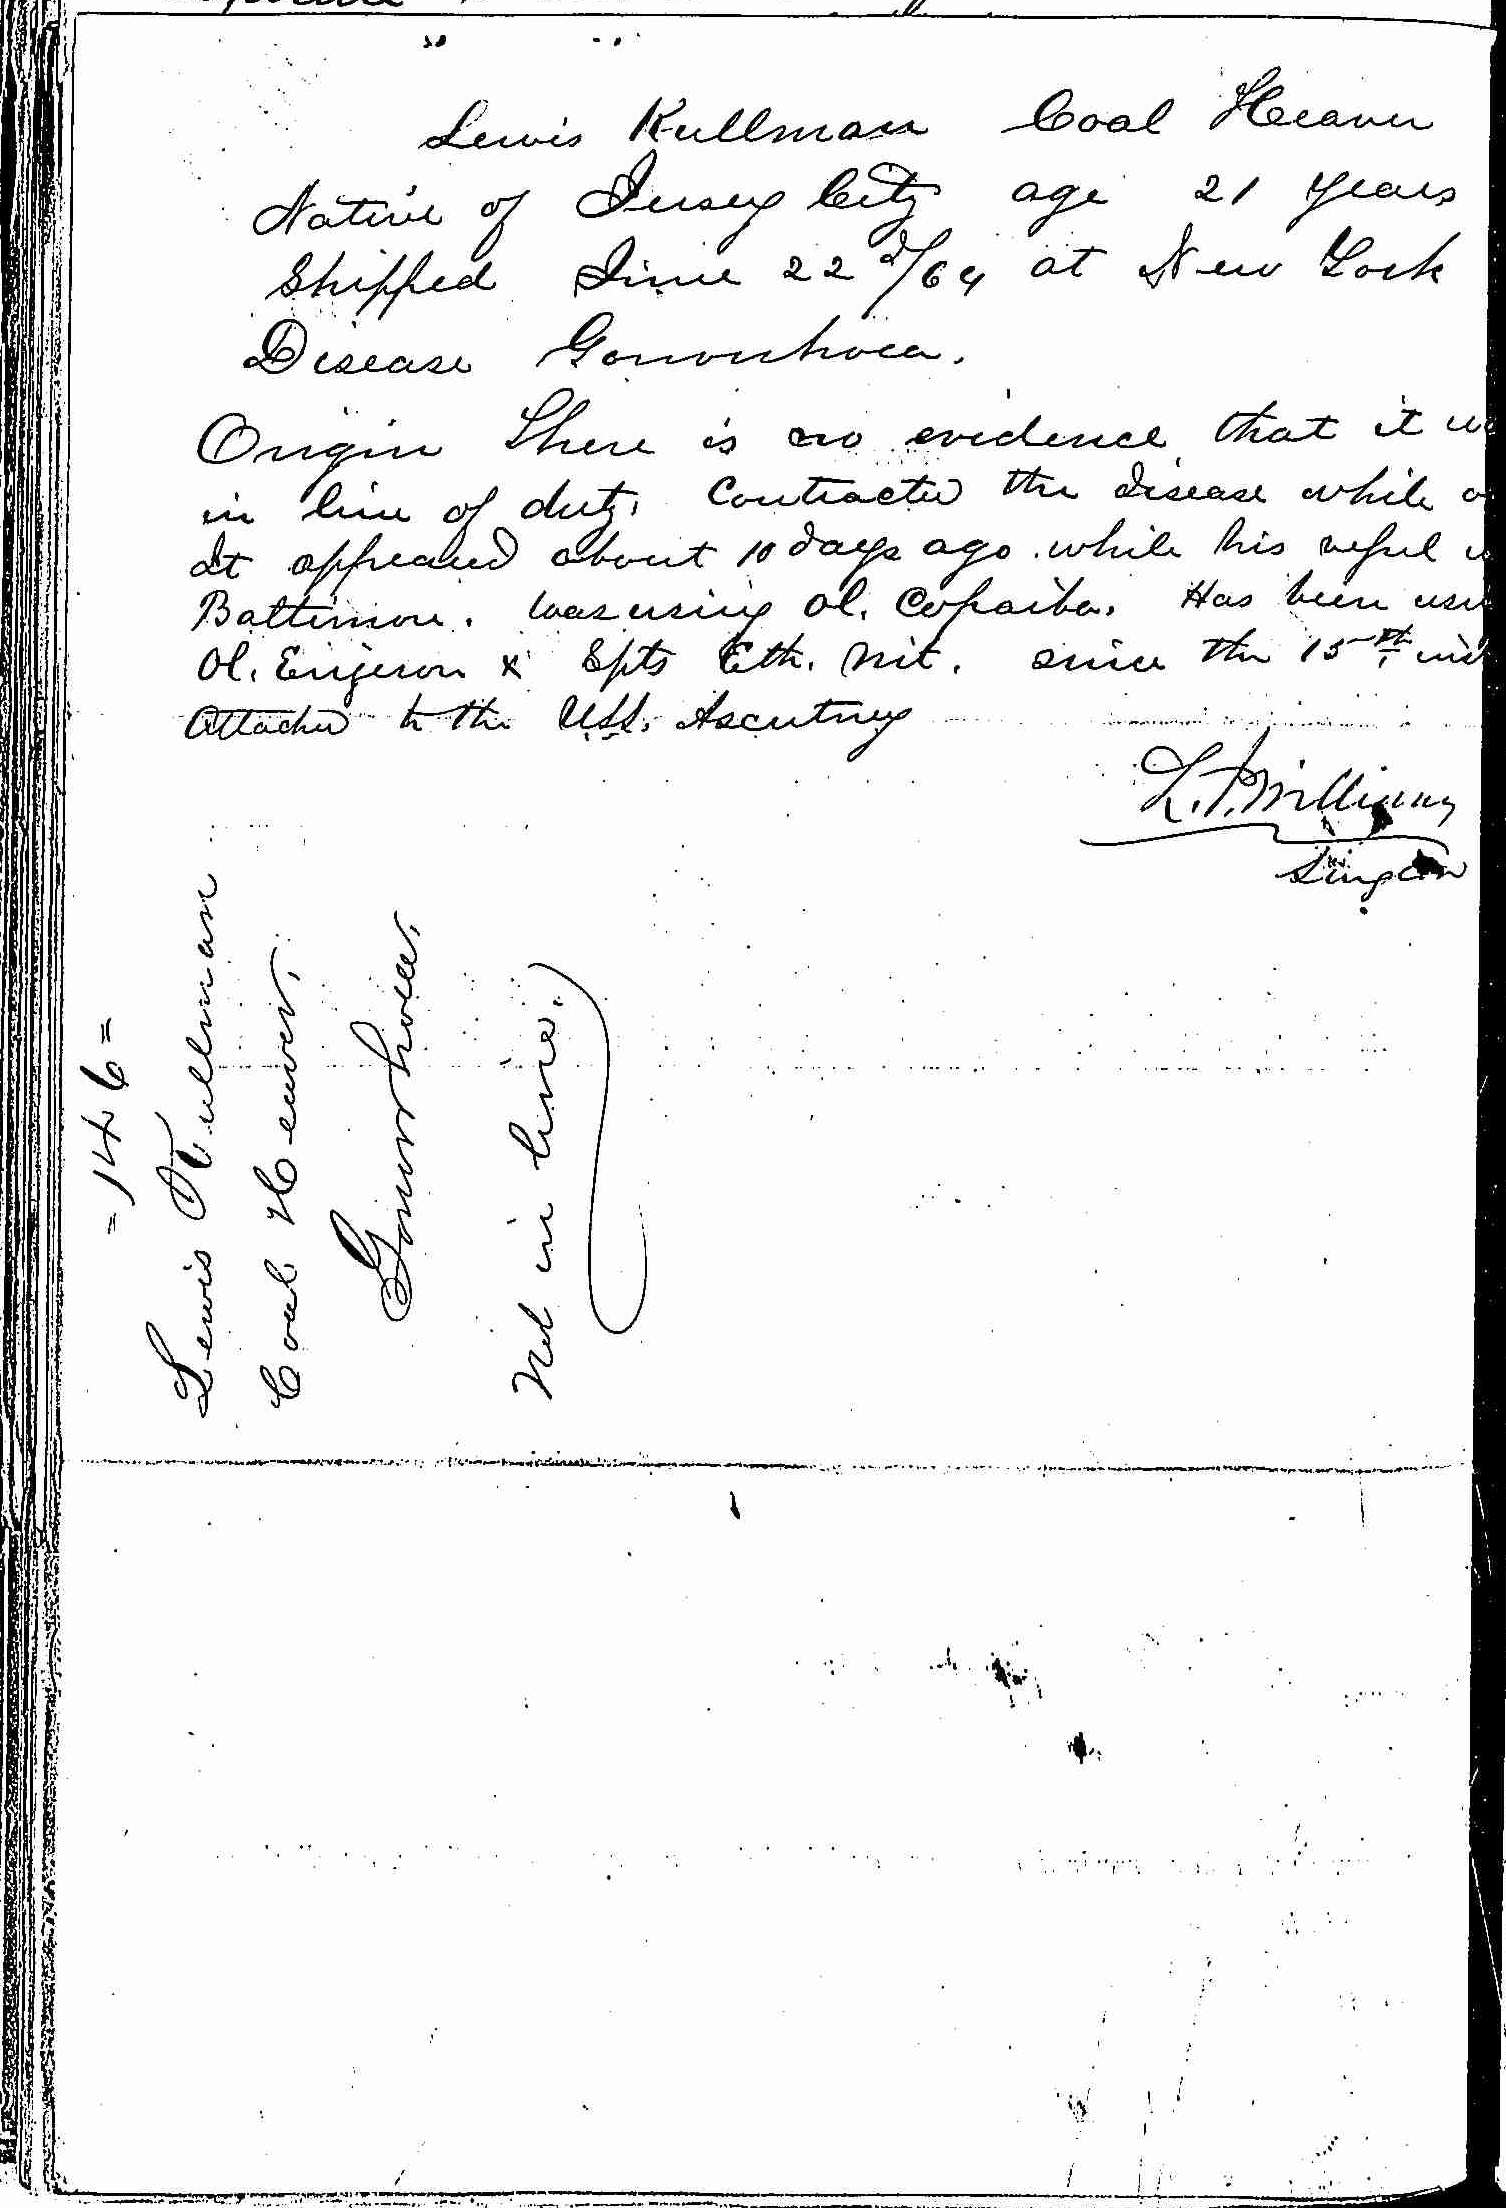 Lewis Kullman Coal Heaver
Native of Jersey City age 21 years
Shipped June 22d/64 at New York
Disease Gonorrhoea.
Origin There is no evidence that it
in line of duty. Contracted the disease while
It appeared about 10 days ago while his vessel
Baltimore. Was using Ol. Copaiba. Has been
Ol. Erigeron & Spts Eth. Nit. since the 15th
Attached to the U.S.S. Ascutney
Surgeon
=146=
Lewis Kullman
Coal Heaver.
Gonorrhoea.
Not in line.